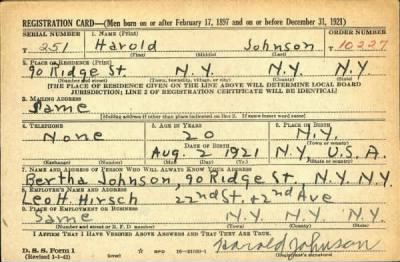 REGISTRATION CARD—(Men born on or after February 17, 1897 and on or before December 31, 1921)
SERIAL NUMBER 1. NAME (Print) ORDER NUMBER
T 251 Harold Johnson T 10227
(First) (Middle) (Last)
2. PLACE OF RESIDENCE (Print)
90 Ridge St. N.Y. N.Y. N.Y.
(Number and street) (Town, township, village, or city) (County) (State)
[THE PLACE OF RESIDENCE GIVEN ON THE LINE ABOVE WILL DETERMINE LOCAL BOARD
JURISDICTION; LINE 2 OF REGISTRATION CERTIFICATE WILL BE IDENTICAL]
3. MAILING ADDRESS
Same
[Mailing address if other than place indicated on line 2. If same insert word same]
4. TELEPHONE 5. AGE IN YEARS 6. PLACE OF BIRTH
None 20 N.Y.
DATE OF BIRTH (Town or county)
Aug. 2 1921 N.Y. U.S.A.
(Exchange) (Number) (Mo.) (Day) (Yr.) (State or country)
7. NAME AND ADDRESS OF PERSON WHO WILL ALWAYS KNOW YOUR ADDRESS
Bertha Johnson, 90 Ridge St., N.Y. N.Y.
8. EMPLOYER'S NAME AND ADDRESS
Leo H. Hirsch 22nd St. + 2nd Ave
9. PLACE OF EMPLOYMENT OR BUSINESS
Same N.Y. N.Y. N.Y.
(Number and street or R. F. D. number) (Town) (County) (State)
I AFFIRM THAT I HAVE VERIFIED ABOVE ANSWERS AND THAT THEY ARE TRUE.
D. S. S. Form 1
(Revised 1-1-42) (over) GPO 16—21630-1 Harold Johnson
(Registrant's signature)